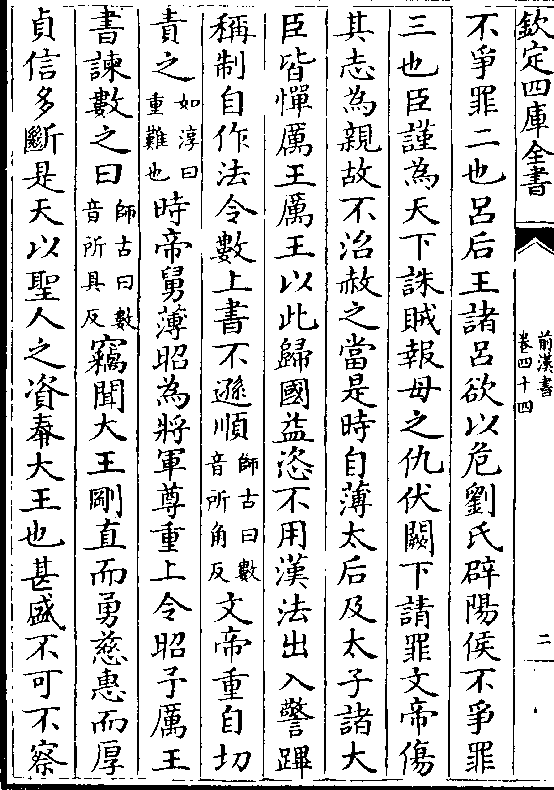 欽定四庫全書
前漢書
卷四十四
二
不爭罪二也呂后王諸呂欲以危劉氏辟陽侯不爭罪
三也臣謹為天下誅賊報母之仇伏闕下請罪文帝傷
其志為親故不治赦之當是時自薄太后及太子諸大
臣皆憚厲王厲王以此歸國益恣不用漢法出入警蹕
稱制自作法令數上書不遜順師古曰數音所角反文帝重自切
責之如淳曰重難也時帝舅薄昭為將軍尊重上令昭予厲王
書諫數之曰師古曰數音所具反竊聞大王剛直而勇慈惠而厚
貞信多斷是天以聖人之資奉大王也甚盛不可不察